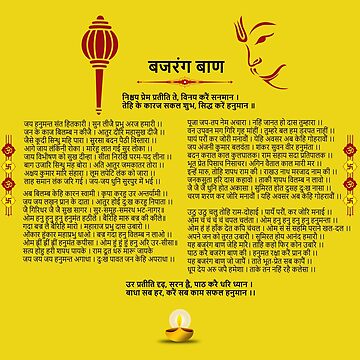 बजरंग बाण
निश्चय प्रेम प्रतीति ते, विनय करें सनमान।
तेहि के कारज सकल शुभ, सिद्ध करैं हनुमान ॥
जय हनुमन्त सन्त हितकारी। सुन लीजै प्रभु अरज हमारी ।।
जन के काज बिलम्ब न कीजै। आतुर दौरि महासुख दीजै ।।
जैसे कूदी सिन्धु महि पारा। सुरसा बदन पैठि विस्तारा ।।
आगे जाय लंकिनी रोका। मारेहु लात गई सुर लोका ।।
जाय विभीषण को सुख दीन्हा। सीता निरखि परम-पद लीना ।।
बाग उजारि सिन्धु मह बोरा। अति आतुर जमकातर तोरा ।।
अक्षय कुमार मारि संहारा। लूम लपेटि लंक को जारा ।।
लाह समान लंक जरि गई। जय-जय धुनि सुरपुर में भई ।।
अब बिलम्ब केहि कारन स्वामी। कृपा करहु उर अन्तर्यामी ।।
जय जय लखन प्रान के दाता। आतुर होई दु:ख करहु निपाता ।।
जै गिरिधर जै जै सुख सागर। सुर-समूह-समरथ भट-नागर॥
ओम हनु हनु हनु हनुमंत हठीले। बैरिहि मारु बज्र की कीले॥
गदा बज्र लै बैरिहि मारो। महाराज प्रभु दास उबारो ।।
ओंकार हुंकार महाप्रभु धाओ। बज्र गदा हनु विलम्ब न लाओ ।।
ओम ह्नीं ह्नीं ह्नीं हनुमंत कपीसा। ओम हुं हुं हुं हनु अरि उर-सीसा॥
सत्य होहु हरी शपथ पायके। राम दूत धरु मारू जायके
जय जय जय हनुमन्त अगाधा। दुःख पावत जन केहि अपराधा ।।
पूजा जप-तप नेम अचारा। नहिं जानत हो दास तुम्हारा ।।
वन उपवन मग गिरि गृह मांहीं। तुम्हरे बल हम डरपत नाहीं ।।
पायं परौं कर जोरी मनावौं। येहि अवसर अब केहि गोहरावौं ।।
जय अंजनी कुमार बलवंता। शंकर सुवन वीर हनुमंता ।।
बदन कराल काल कुलघालक। राम सहाय सदा प्रतिपालक ।।
भूत प्रेत पिसाच निसाचर। अगिन वैताल काल मारी मर ।।
इन्हें मारु, तोहि शपथ राम की। राखउ नाथ मरजाद नाम की ।।
जनकसुता हरि दास कहावो। ताकी शपथ विलम्ब न लावो ।।
जै जै जै धुनि होत अकासा। सुमिरत होत दुसह दुःख नासा ।।
चरण शरण कर जोरि मनावौं। यहि अवसर अब केहि गोहरावौं ।।
उठु उठु चलु तोहि राम-दोहाई। पायँ परौं, कर जोरि मनाई ।।
ओम चं चं चं चं चपत चलंता। ओम हनु हनु हनु हनु हनुमन्ता ।।
ओम हं हं हाँक देत कपि चंचल। ओम सं सं सहमि पराने खल-दल ।।
अपने जन को तुरत उबारौ। सुमिरत होय आनंद हमारौ ।।
यह बजरंग बाण जेहि मारै। ताहि कहो फिर कोन उबारै ।।
पाठ करै बजरंग बाण की। हनुमत रक्षा करैं प्रान की ।।
यह बजरंग बाण जो जापैं। ताते भूत-प्रेत सब कापैं ।।
धूप देय अरु जपै हमेशा। ताके तन नहिं रहै कलेसा ।।
उर प्रतीति दृढ़, सरन ह्वै, पाठ करै धरि ध्यान।
बाधा सब हर, करैं सब काम सफल हनुमान ॥